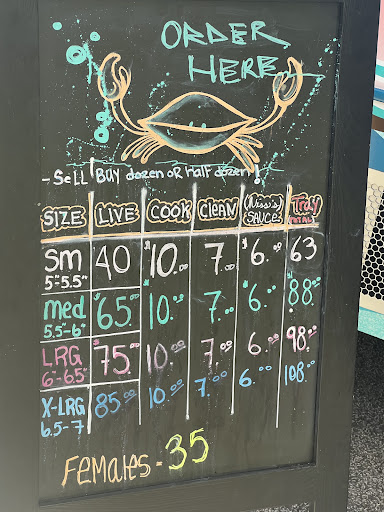 ORDER
HERE
- Sell / BUY dozen OR Half dozen!
SIZE LIVE COOK CLEAN (Niss's) SAUCE Tray TOTAL
Sm 40 $10.00 7.00 $6.00 63
5"-5.5"
med $65.00 $10.00 7.00 $6.00 $88.00
5.5"-6"
LRG $75.00 10.00 7.00 6.00 98.00
6"-6.5"
X-LRG 85.00 10.00 7.00 6.00 108.00
6.5-7
FemaLes - 35